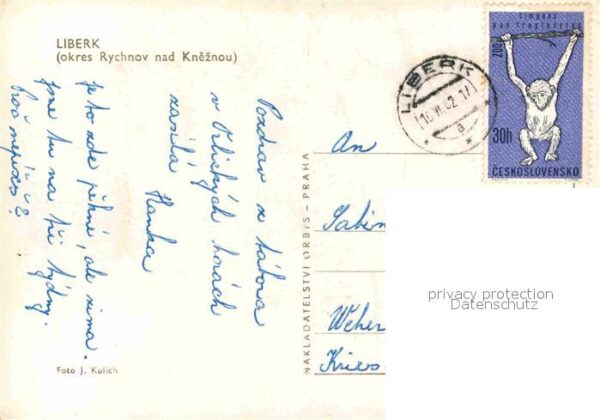 LIBERK
(okres Rychnov nad Kněžnou)
Pozdrav z tábora
v Orlických horách
zasílá
Hanka
Je to zde pěkné, ale zima.
Jsme tu na tři týdny.
Proč nepíšeš?
Foto J. Kulich
NAKLADATELSTVÍ ORBIS - PRAHA
LIBERK
16.VI.62.17
a
šimpanz
pan troglodytes
ZOO
30h
ČESKOSLOVENSKO
An
Sabin
Weher
Kries
privacy protection
Datenschutz